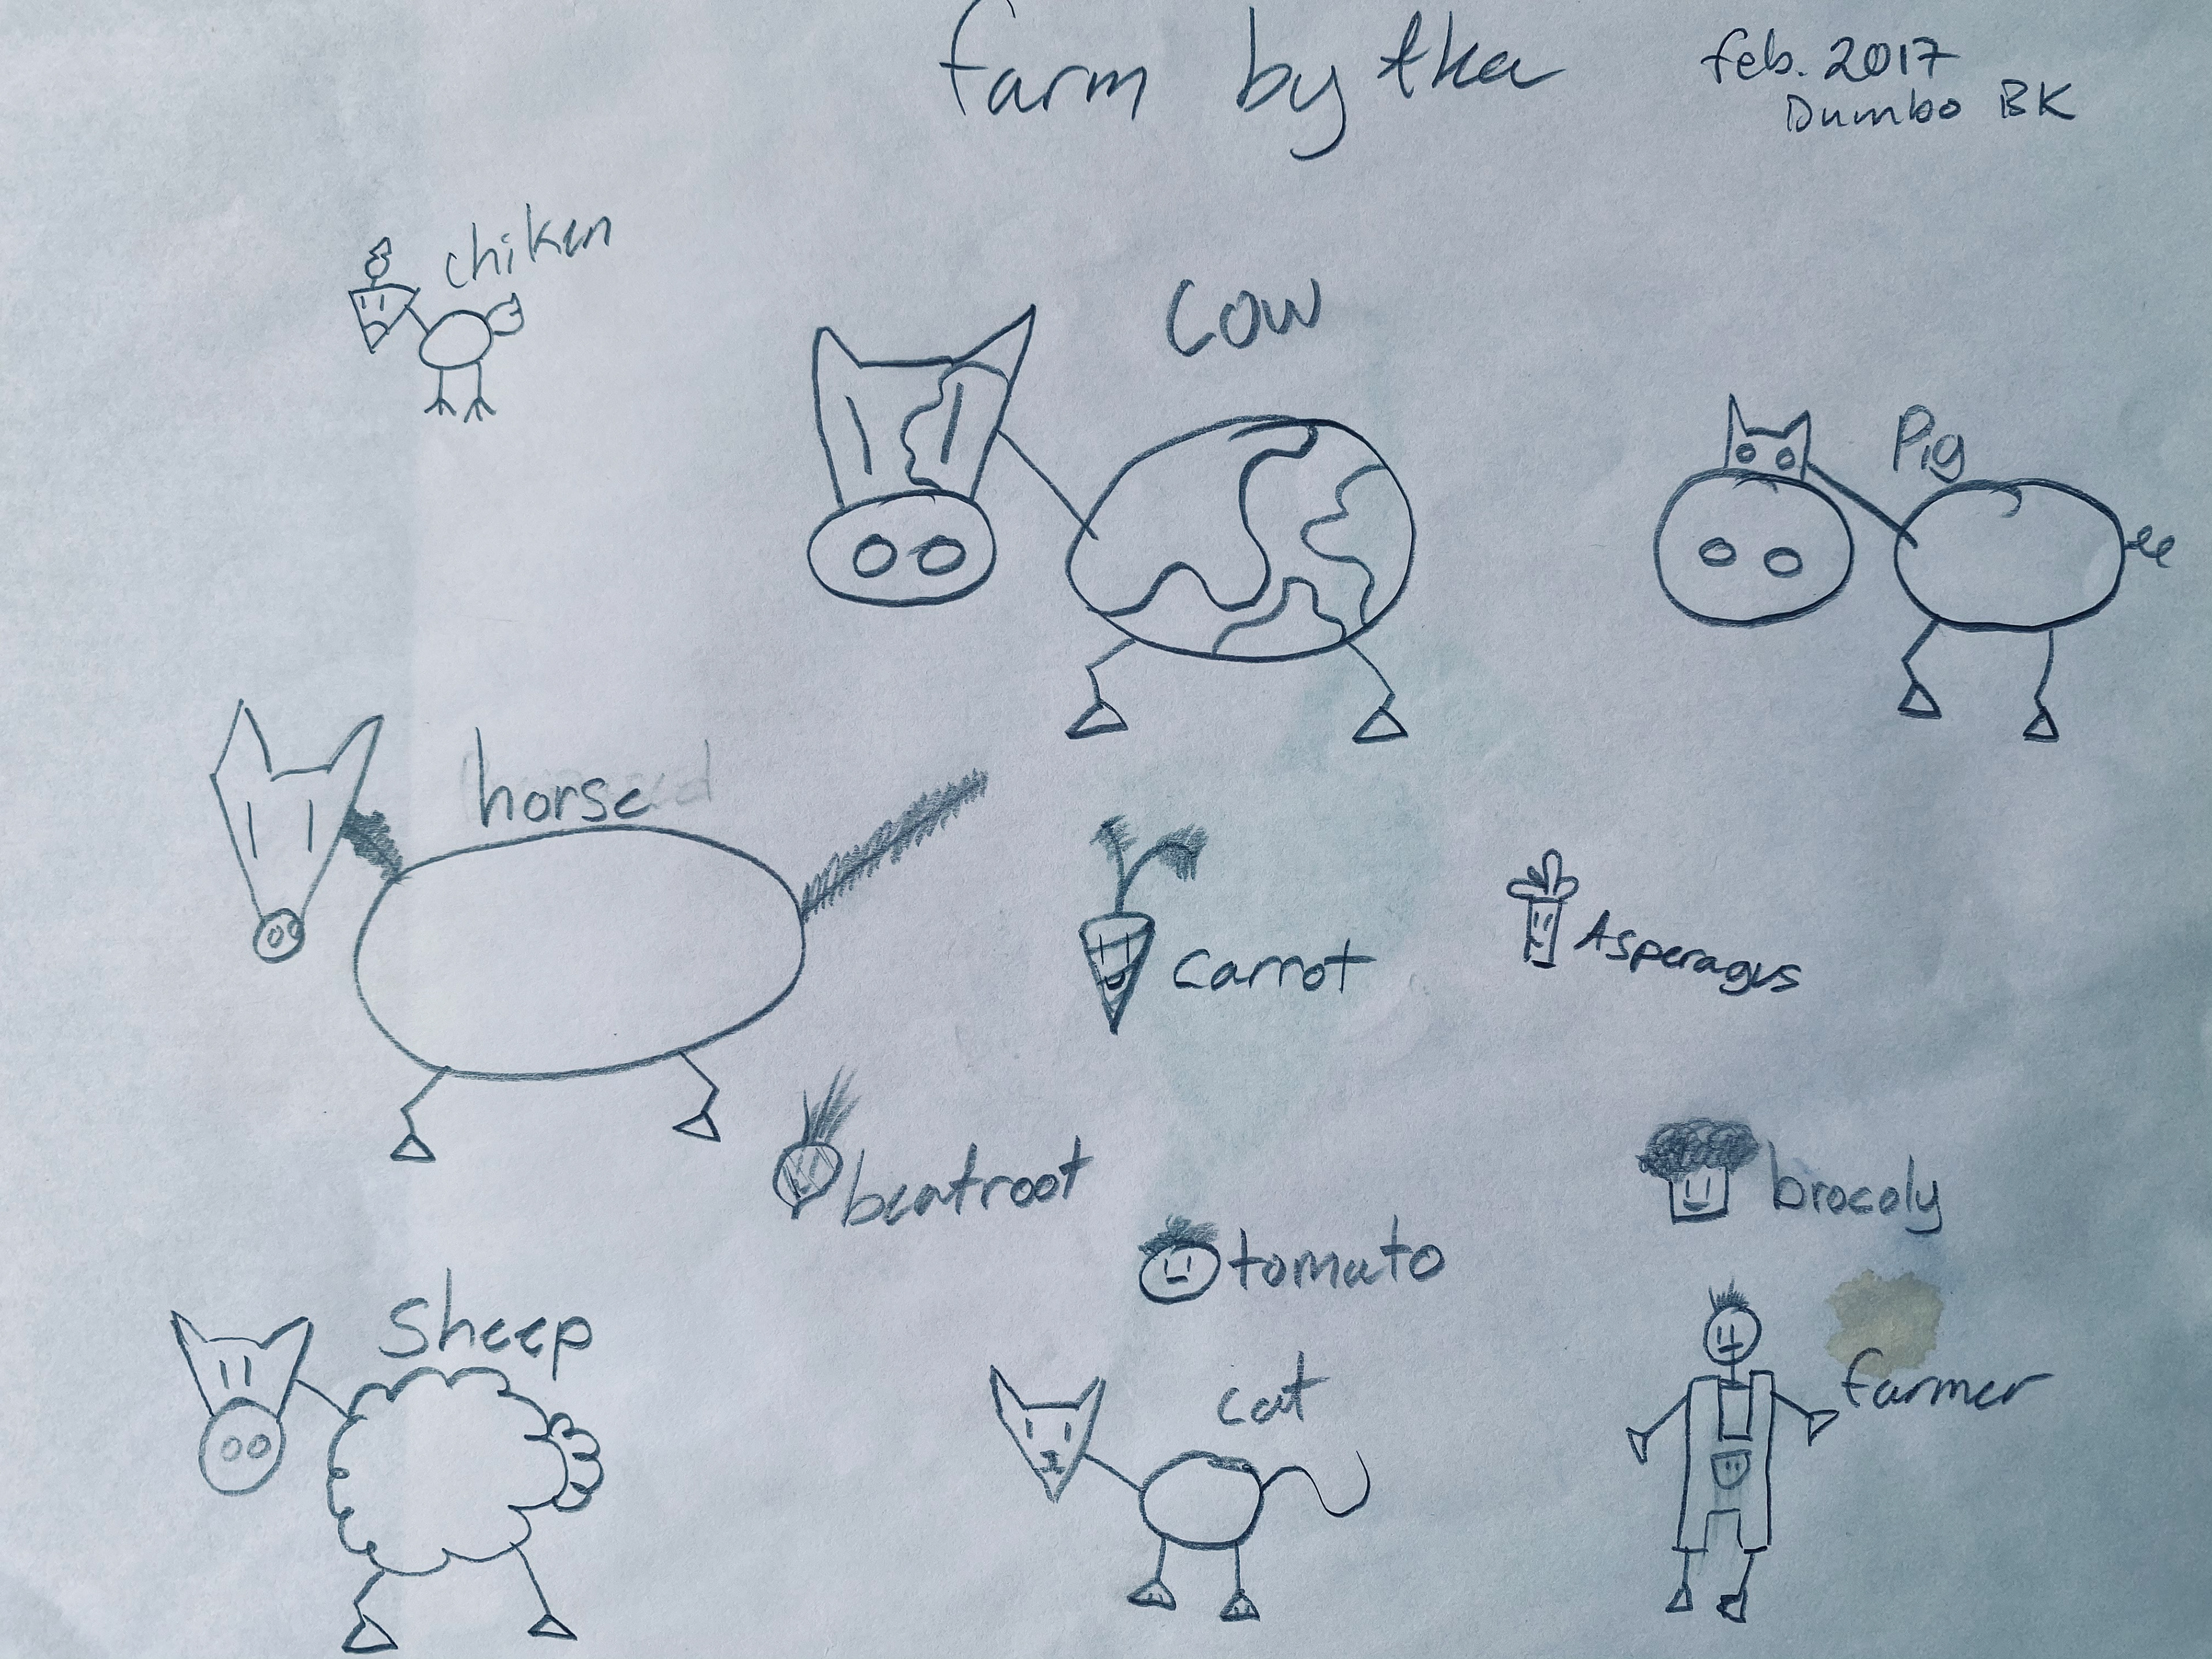 farm by tka
feb. 2017
Dumbo BK
chiken
cow
Pig
horse
carrot
Asperagus
beatroot
brocoly
tomato
sheep
cat
farmer